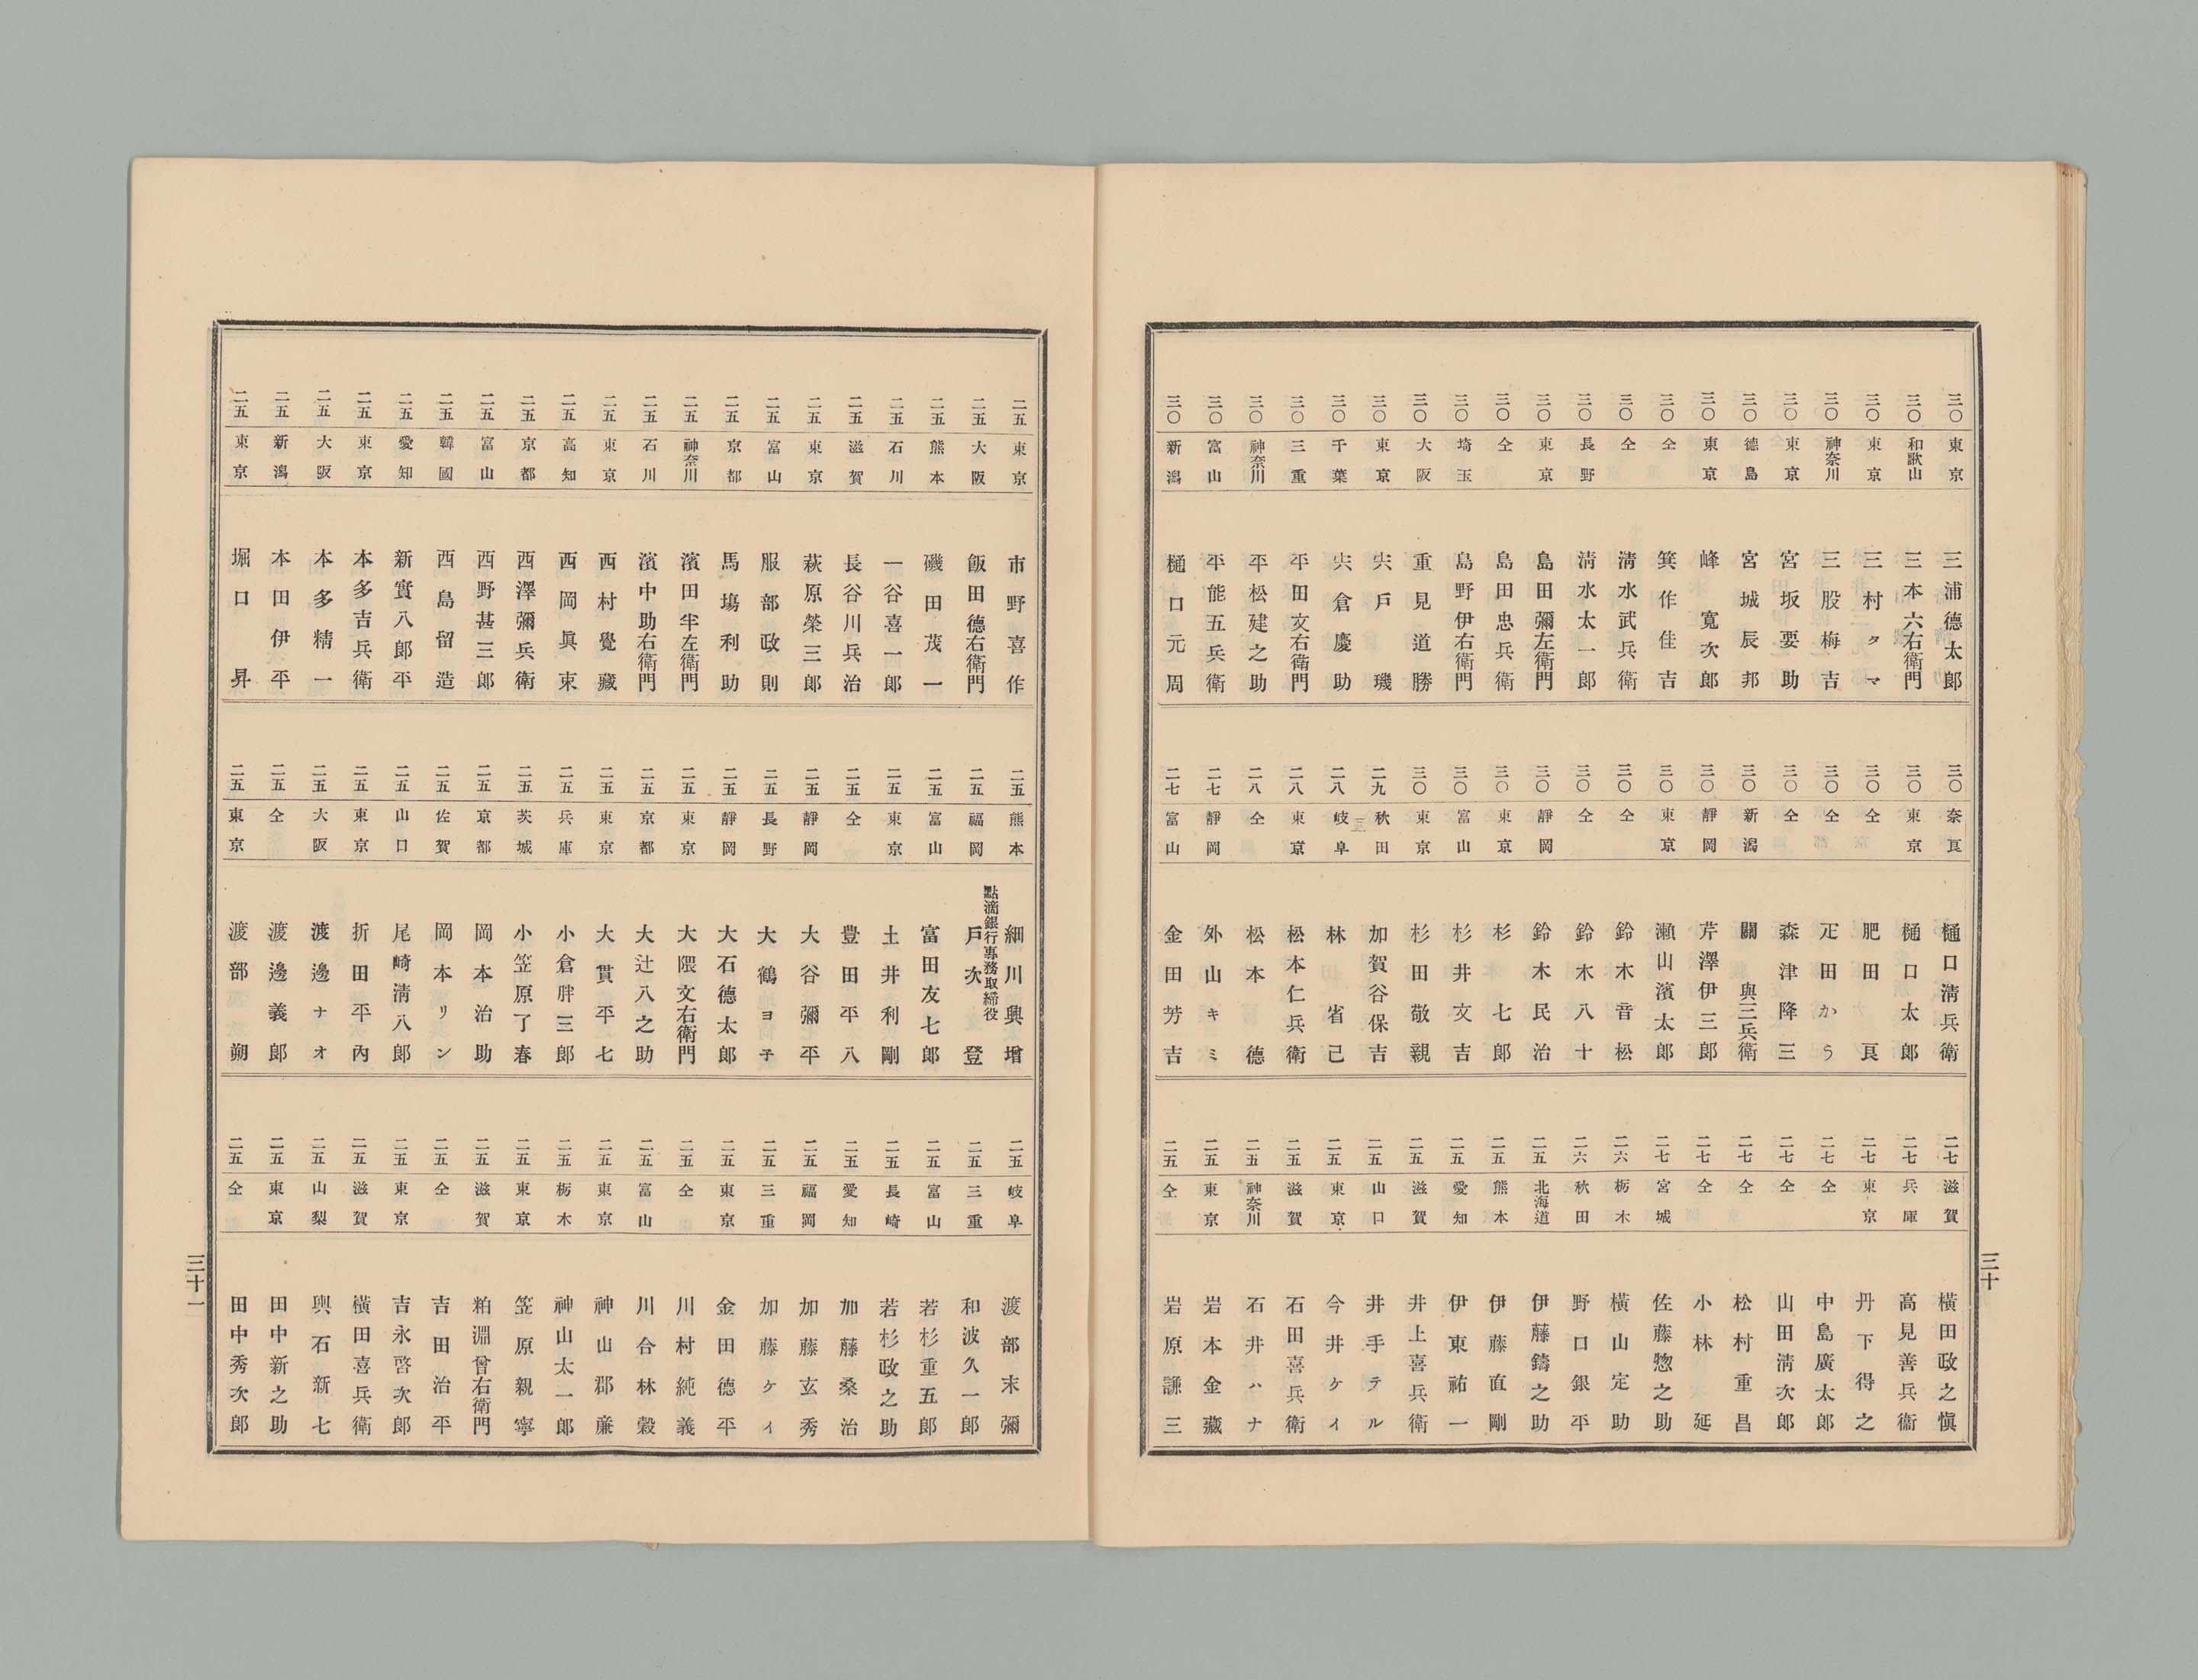 三〇 東京 三浦德太郎
三〇 和歌山 三本六右衛門
三〇 東京 三村タマ
三〇 神奈川 三股梅吉
三〇 東京 宮坂要助
三〇 德島 宮城辰邦
三〇 東京 峰寬次郎
三〇 仝 箕作佳吉
三〇 仝 淸水武兵衛
三〇 長野 淸水太一郎
三〇 東京 島田彌左衛門
三〇 仝 島田忠兵衛
三〇 埼玉 島野伊右衛門
三〇 大阪 重見道勝
三〇 東京 宍戶璣
三〇 千葉 宍倉慶助
三〇 三重 平田文右衛門
三〇 神奈川 平松建之助
三〇 富山 平能五兵衛
三〇 新潟 樋口元周
三〇 奈良 樋口淸兵衛
三〇 東京 樋口太郎
三〇 仝 肥田良
三〇 仝 疋田かう
三〇 仝 森津降三
三〇 新潟 關與三兵衛
三〇 靜岡 芹澤伊三郎
三〇 東京 瀨山濱太郎
三〇 仝 鈴木音松
三〇 仝 鈴木八十
三〇 靜岡 鈴木民治
三〇 東京 杉七郎
三〇 富山 杉井文吉
三〇 東京 杉田敬親
二九 秋田 加賀谷保吉
二八 岐阜 林省己
二八 東京 松本仁兵衛
二八 仝 松本德
二七 靜岡 外山キミ
二七 富山 金田芳吉
二七 滋賀 橫田政之愼
二七 兵庫 高見善兵衞
二七 東京 丹下得之
二七 仝 中島廣太郎
二七 仝 山田淸次郎
二七 仝 松村重昌
二七 仝 小林延
二七 宮城 佐藤惣之助
二六 栃木 橫山定助
二六 秋田 野口銀平
二五 北海道 伊藤鑄之助
二五 熊本 伊藤直剛
二五 愛知 伊東祐一
二五 滋賀 井上喜兵衛
二五 山口 井手テル
二五 東京 今井ケイ
二五 滋賀 石田喜兵衛
二五 神奈川 石井ハナ
二五 東京 岩本金藏
二五 仝 岩原謙三
三十
二五 東京 市野喜作
二五 大阪 飯田德右衛門
二五 熊本 磯田茂一
二五 石川 一谷喜一郎
二五 滋賀 長谷川兵治
二五 東京 萩原榮三郎
二五 富山 服部政則
二五 京都 馬塲利助
二五 神奈川 濱田牢左衛門
二五 石川 濱中助右衛門
二五 東京 西村覺藏
二五 高知 西岡眞東
二五 京都 西澤彌兵衛
二五 富山 西野甚三郎
二五 韓國 西島留造
二五 愛知 新實八郎平
二五 東京 本多吉兵衛
二五 大阪 本多精一
二五 新潟 本田伊平
二五 東京 堀口昇
二五 熊本 細川興增
二五 福岡 點滴銀行專務取締役 戶次登
二五 富山 富田友七郎
二五 東京 土井利剛
二五 仝 豊田平八
二五 靜岡 大谷彌平
二五 長野 大鶴ヨネ
二五 靜岡 大石德太郎
二五 東京 大隈文右衛門
二五 京都 大辻八之助
二五 東京 大貫平七
二五 兵庫 小倉胖三郎
二五 茨城 小笠原了春
二五 京都 岡本治助
二五 佐賀 岡本リン
二五 山口 尾崎淸八郎
二五 東京 折田平內
二五 大阪 渡邊ナオ
二五 仝 渡邊義郎
二五 東京 渡部朔
二五 岐阜 渡部末彌
二五 三重 和波久一郎
二五 富山 若杉重五郎
二五 長崎 若杉政之助
二五 愛知 加藤桑治
二五 福岡 加藤玄秀
二五 三重 加藤ケイ
二五 東京 金田德平
二五 仝 川村純義
二五 富山 川合林穀
二五 東京 神山郡廉
二五 栃木 神山太一郎
二五 東京 笠原親寧
二五 滋賀 粕淵曾右衛門
二五 仝 吉田治平
二五 東京 吉永啓次郎
二五 滋賀 橫田喜兵衛
二五 山梨 輿石新七
二五 東京 田中新之助
二五 仝 田中秀次郎
三十一